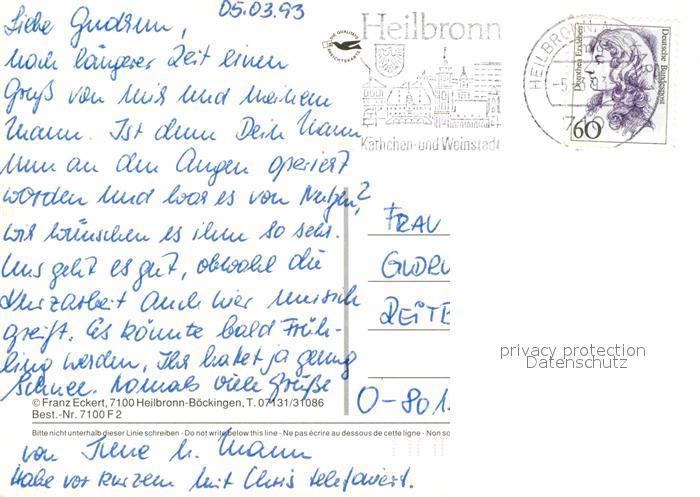 05.03.93
Liebe Gudrun,
nach längerer Zeit einen
Gruß von mir und meinem
Mann. Ist denn Dein Mann
nun an den Augen operiert
worden und war es von Nutzen?
wir wünschen es ihm so sehr.
Uns geht es gut, obwohl die
Kurzarbeit auch hier um sich
greift. Es könnte bald Früh-
ling werden, Ihr hattet ja genug
Schnee. Nomals viele Grüße
© Franz Eckert, 7100 Heilbronn-Böckingen, T. 07131/31086
Best.-Nr. 7100 F 2
Bitte nicht unterhalb dieser Linie schreiben - Do not write below this line - Ne pas écrire au dessous de cette ligne - Non sc
von Irene u. Mann
Habe vor kurzem mit Chris telefoniert.
Heilbronn
Käthchen- und Weinstadt
HEILBRONN
Dorothea Erxleben
Deutsche Bundespost
60
FRAU
GUDRU
REITE
O-801
privacy protection
Datenschutz